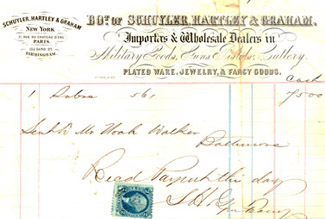 SCHUYLER, HARTLEY & GRAHAM
NEW YORK
PARIS
BIRMINGHAM.
Bot. of SCHUYLER, HARTLEY & GRAHAM,
Importers & Wholesale Dealers in
Military Goods, Guns, Pistols, Cutlery.
PLATED WARE, JEWELRY, & FANCY GOODS.
Cash
1 Sabre 561 7500
Noah Walker
Baltimore
Recd Payment this day
SH&G